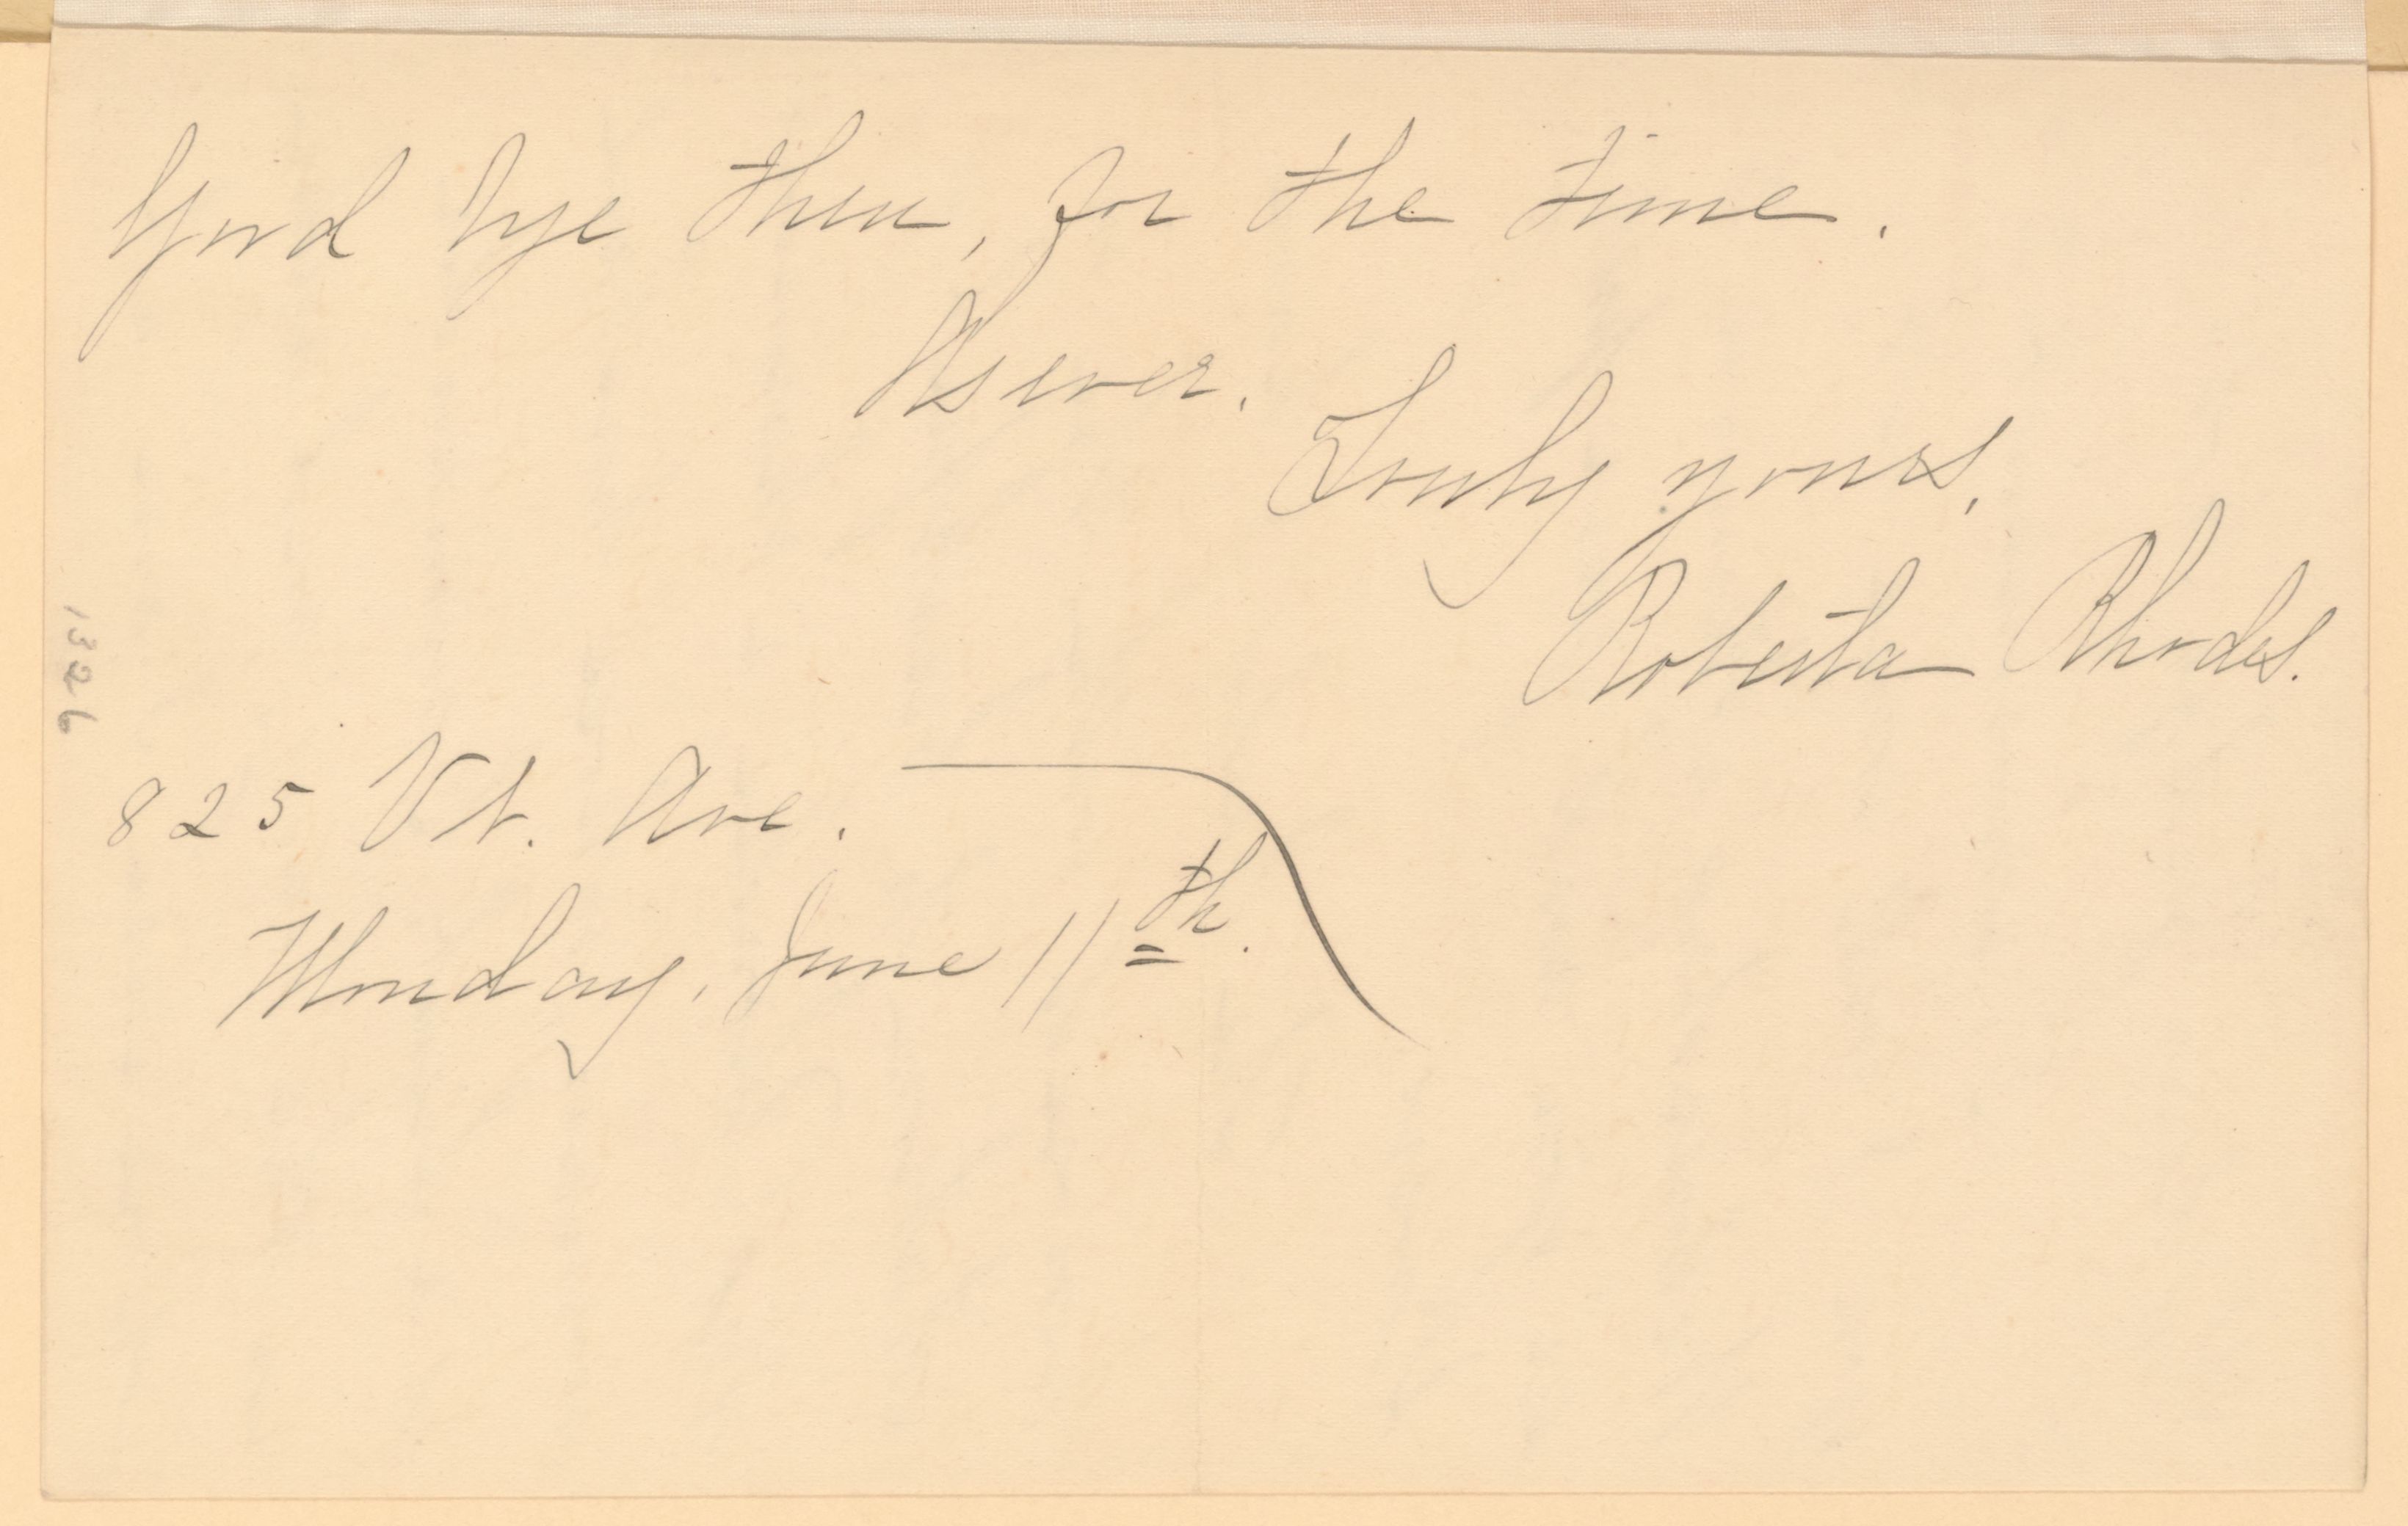 Good bye then, for the time.
As ever.
Truly yours,
Roberta Rhodes.
825 Vt. Ave.
Monday, June 11th.
1326